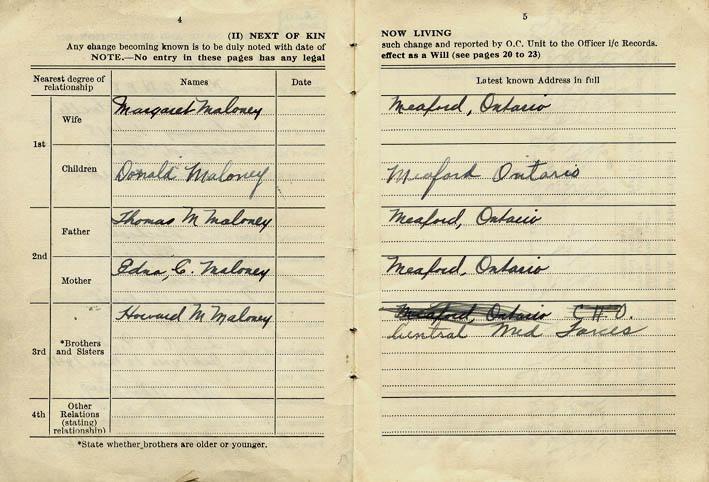 4
(II) NEXT OF KIN
Any change becoming known is to be duly noted with date of
NOTE.—No entry in these pages has any legal
Nearest degree of relationship
Names
Date
1st
Wife
Margaret Maloney
Children
Donald Maloney
2nd
Father
Thomas M Maloney
Mother
Edna, C. Maloney
3rd
*Brothers and Sisters
Howard M Maloney
4th
Other Relations (stating) relationship)
*State whether brothers are older or younger.
5
NOW LIVING
such change and reported by O.C. Unit to the Officer i/c Records.
effect as a Will (see pages 20 to 23)
Latest known Address in full
Meaford, Ontario
Meaford Ontario
Meaford, Ontario
Meaford, Ontario
Meaford, Ontario
Central Med Forces